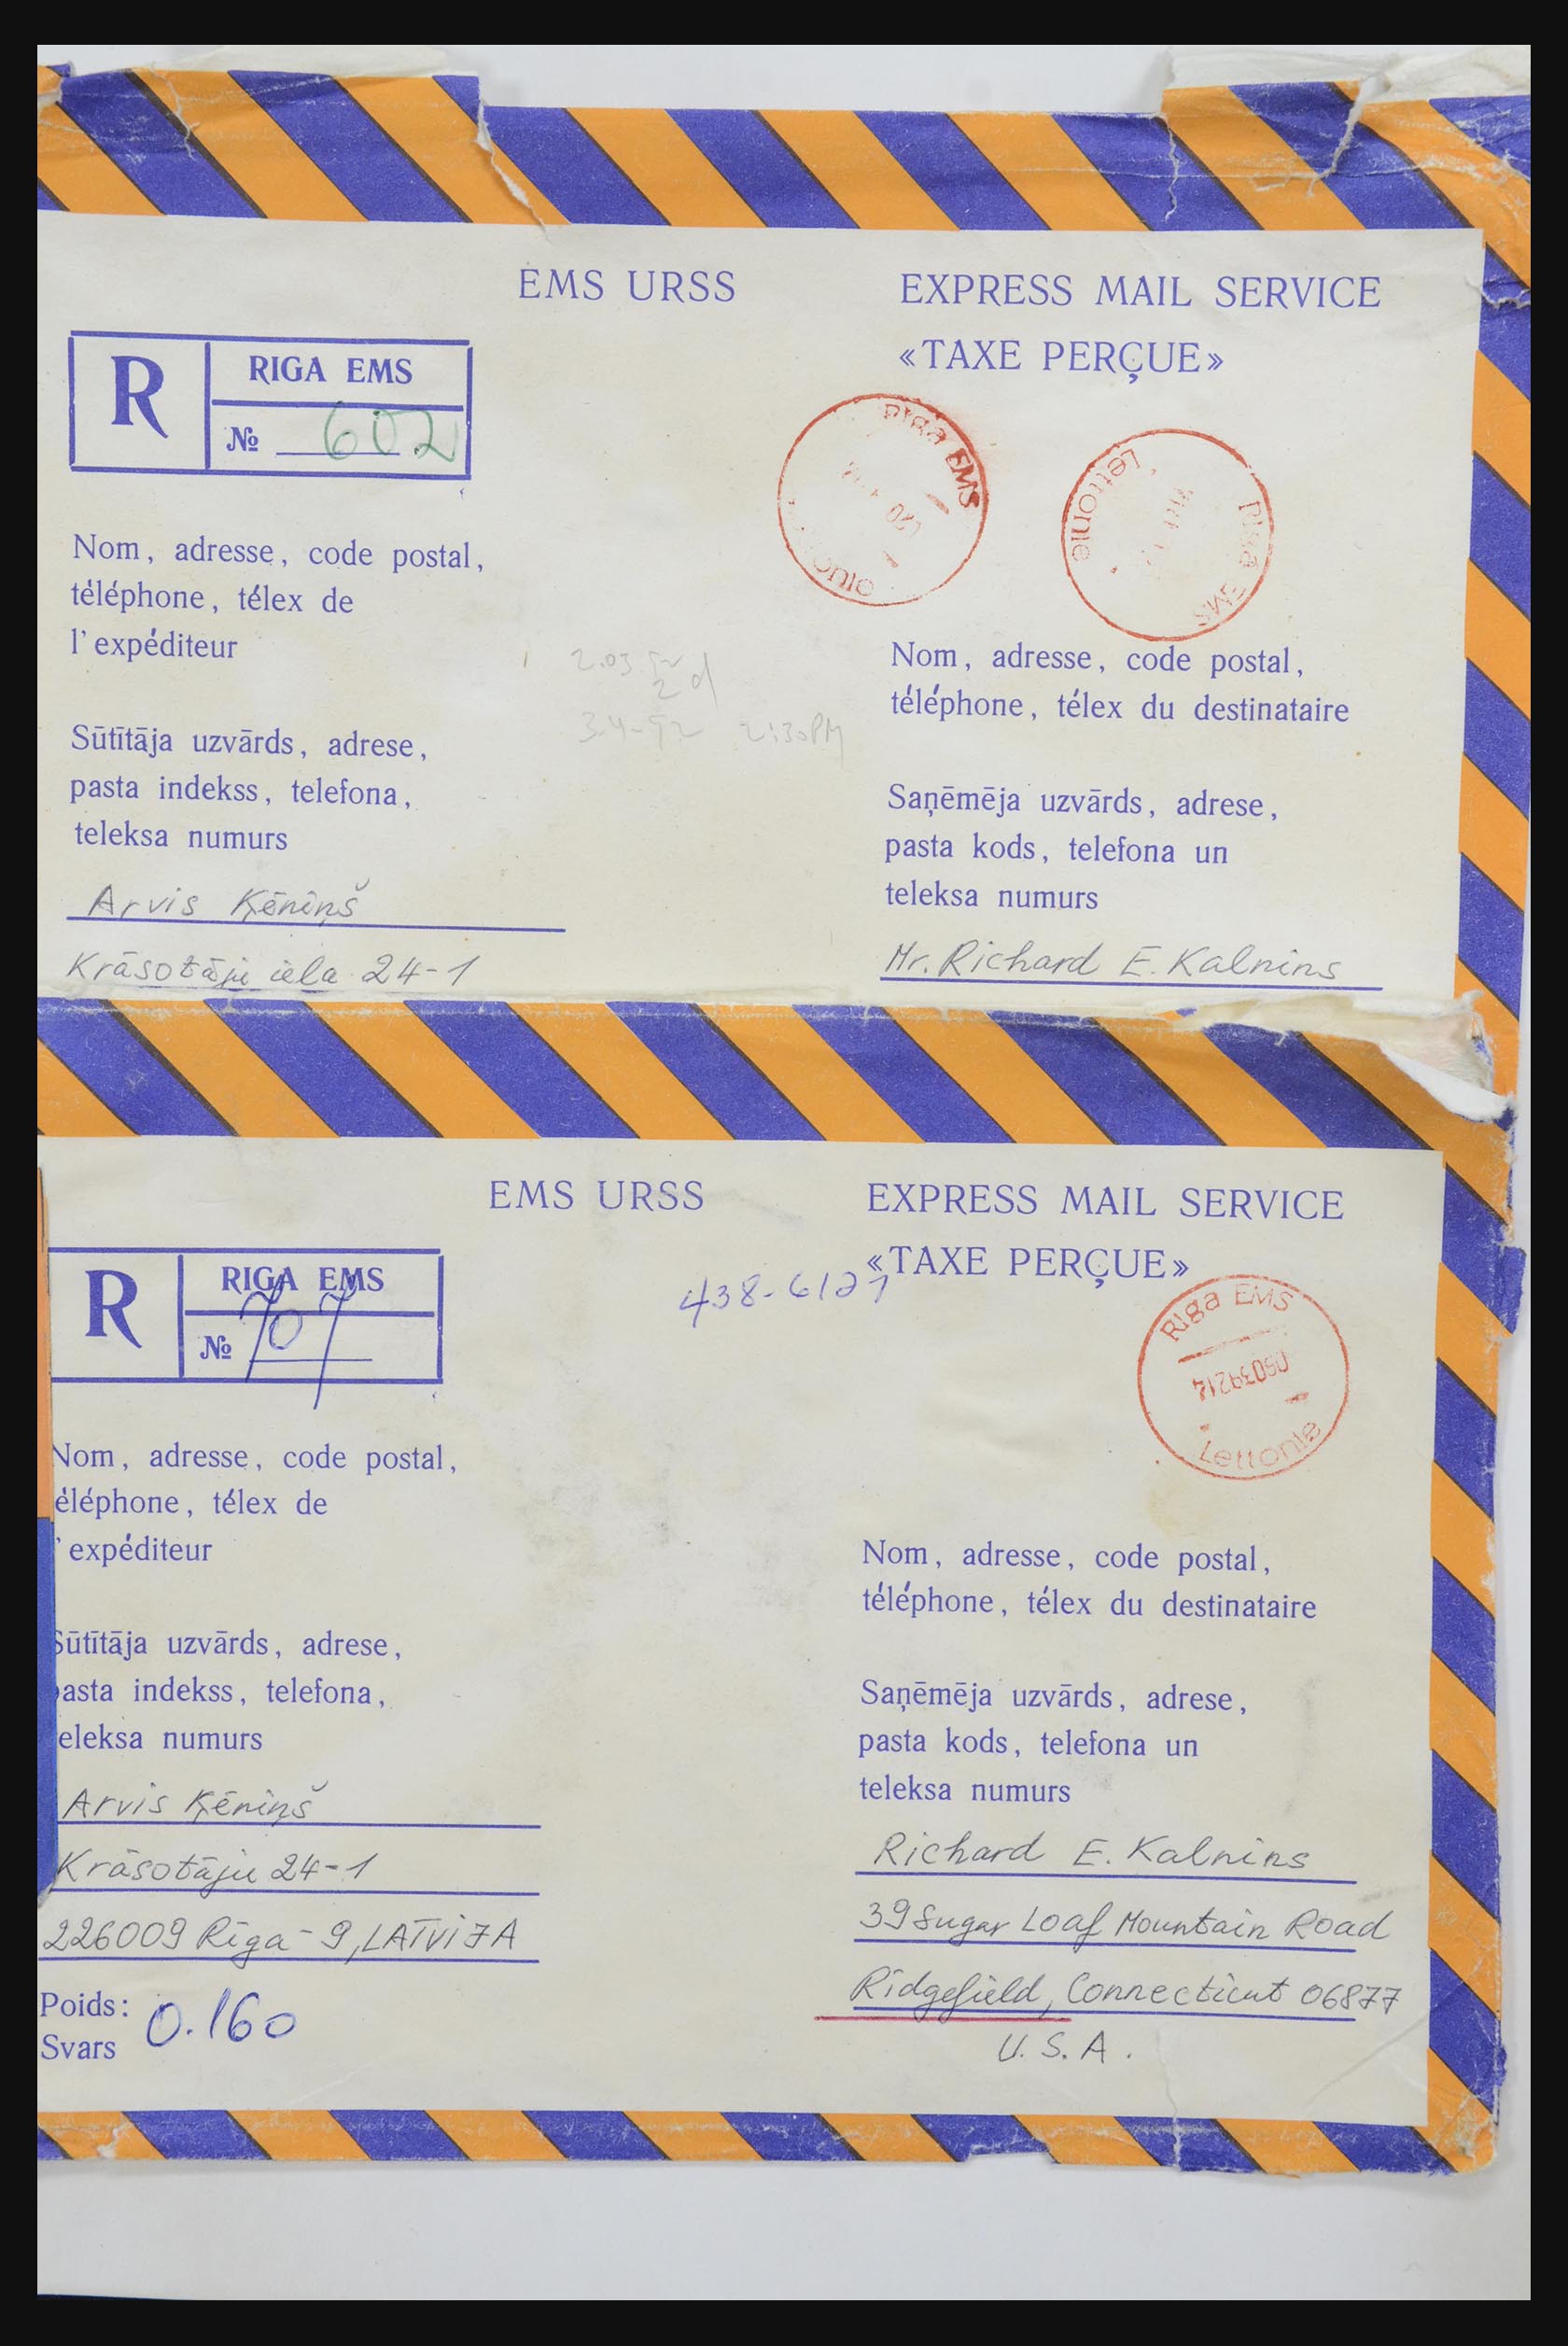 EMS URSS
EXPRESS MAIL SERVICE
«TAXE PERÇUE»
R
RIGA EMS
№ 602
Riga EMS
Riga EMS
Lettonie
Nom, adresse, code postal,
téléphone, télex de
l'expéditeur
2.03
3.4-92 2:30PM
Sūtītāja uzvārds, adrese,
pasta indekss, telefona,
teleksa numurs
Arvis Ķēniņš
Krāsotāju iela 24-1
Nom, adresse, code postal,
téléphone, télex du destinataire
Saņēmēja uzvārds, adrese,
pasta kods, telefona un
teleksa numurs
Mr. Richard E. Kalnins
EMS URSS
EXPRESS MAIL SERVICE
«TAXE PERÇUE»
438-6121
R
RIGA EMS
№ 707
Riga EMS
05039214
Lettonie
Nom, adresse, code postal,
éléphone, télex de
'expéditeur
Sūtītāja uzvārds, adrese,
asta indekss, telefona,
eleksa numurs
Arvis Ķēniņš
Krāsotāju 24-1
226009 Rīga-9, LATVIJA
Poids:
Svars
0.160
Nom, adresse, code postal,
téléphone, télex du destinataire
Saņēmēja uzvārds, adrese,
pasta kods, telefona un
teleksa numurs
Richard E. Kalnins
39 Sugar Loaf Mountain Road
Ridgefield, Connecticut 06877
U.S.A.